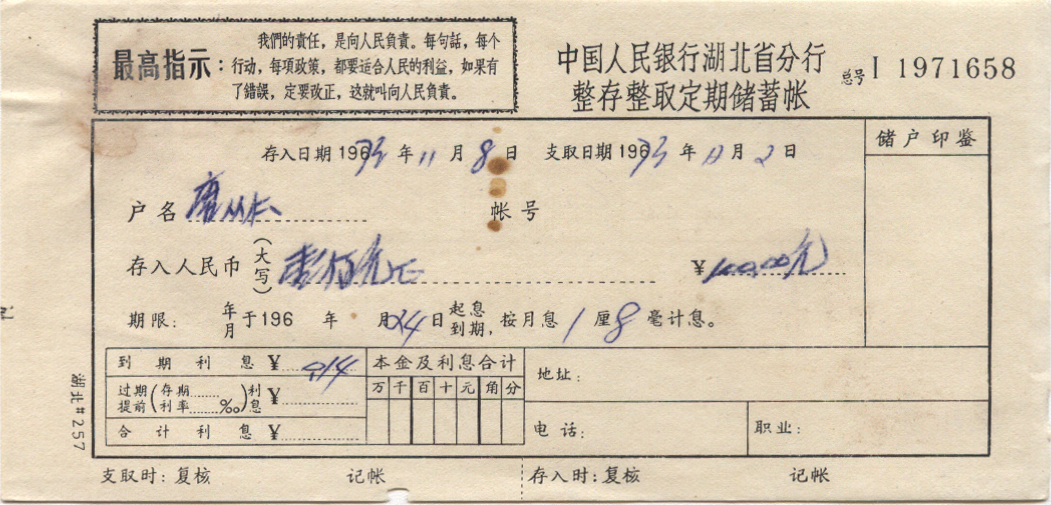 最高指示：
我們的責任，是向人民負責。每句話，每个
行动，每項政策，都要适合人民的利益，如果有
了錯誤，定要改正，这就叫向人民負責。
中国人民银行湖北省分行
整存整取定期储蓄帐
总号 I 1971658
存入日期196 年11月8日 支取日期196 年 月2日
储户印鉴
户名
帐号
存入人民币（大写） ¥100.00元
期限：年月于196 年 月24日起息到期，按月息1厘8毫计息。
到期利息¥0.14
过期提前（存期......利率......‰）利息¥
合计利息¥
本金及利息合计
万千百十元角分
地址：
电话：
职业：
支取时：复核 记帐
存入时：复核 记帐
湖北#257